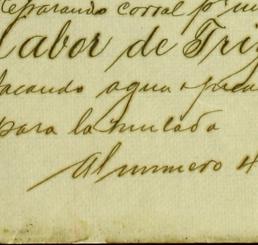 reparando corral pª
Labor de Tri
sacando agua
para la mulada
Al numero 4